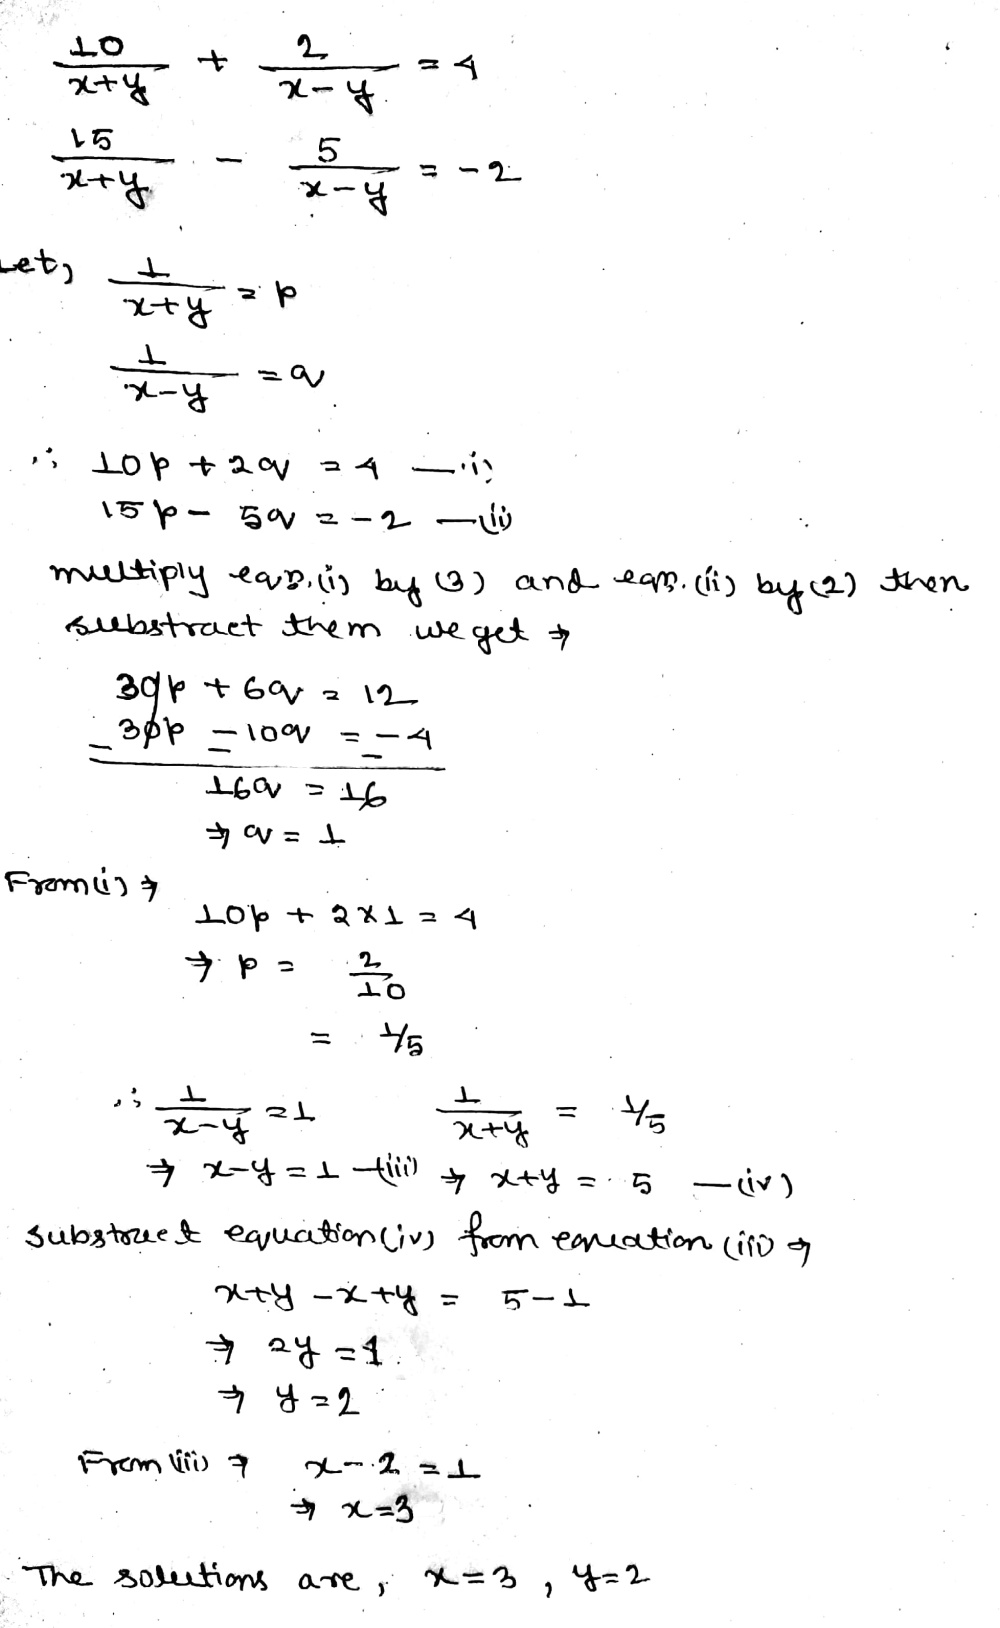 10/(x+y) + 2/(x-y) = 4
15/(x+y) - 5/(x-y) = -2
Let, 1/(x+y) = p
1/(x-y) = q
∴ 10p + 2q = 4 —(i)
15p - 5q = -2 —(ii)
multiply eqn.(i) by (3) and eqn.(ii) by (2) then
substract them we get ⇒
30p + 6q = 12
30p - 10q = -4
- - -
16q = 16
⇒ q = 1
From(i) ⇒
10p + 2×1 = 4
⇒ p = 2/10
= 1/5
∴ 1/(x-y) = 1 1/(x+y) = 1/5
⇒ x-y = 1 —(iii) ⇒ x+y = 5 —(iv)
substruct equation(iv) from equation (iii) ⇒
x+y -x+y = 5-1
⇒ 2y = 4
⇒ y = 2
From (iii) ⇒ x-2 = 1
⇒ x=3
The solutions are, x=3, y=2